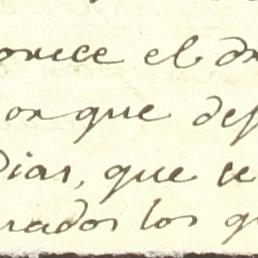 orece el
orque def
Dias, que se
rados los q